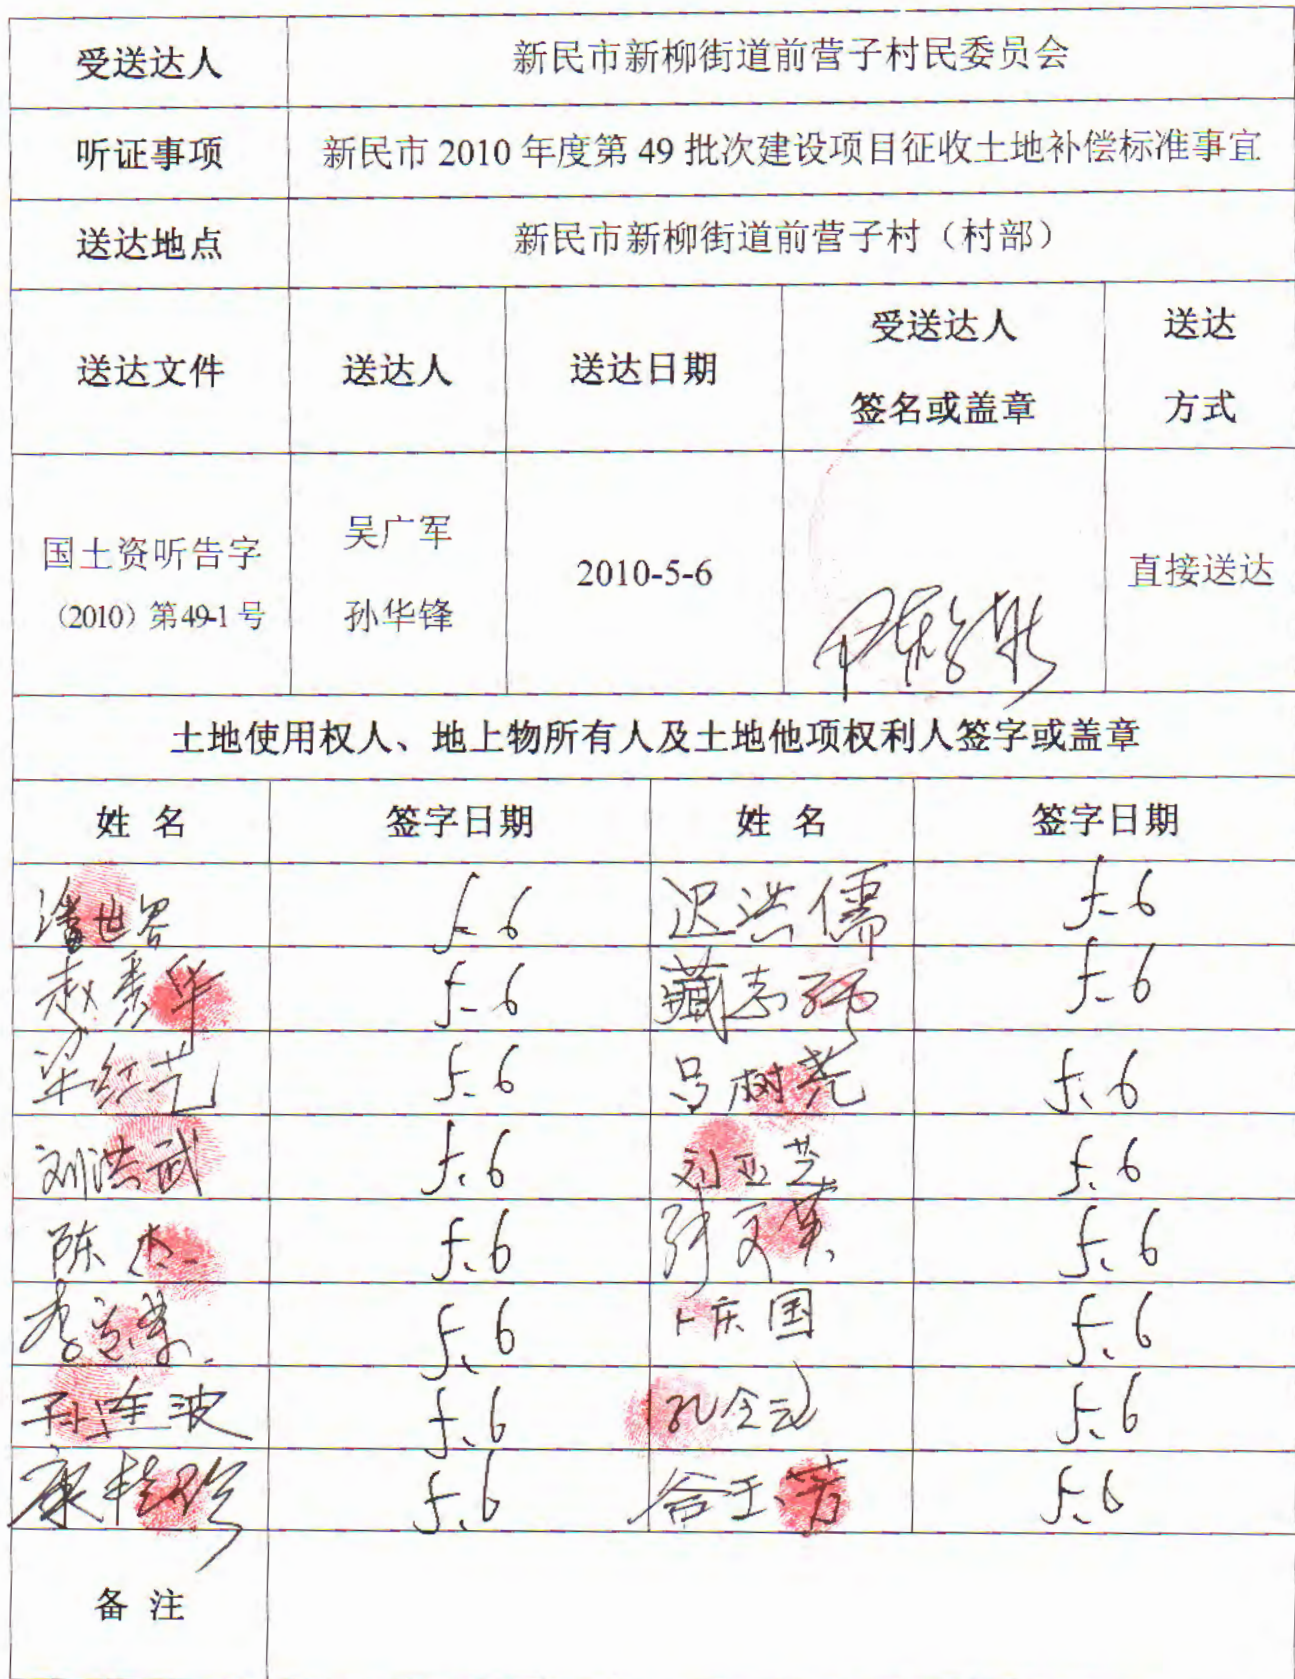 受送达人 新民市新柳街道前营子村民委员会
听证事项 新民市 2010 年度第 49 批次建设项目征收土地补偿标准事宜
送达地点 新民市新柳街道前营子村（村部）
送达文件 送达人 送达日期 受送达人 签名或盖章 送达 方式
国土资听告字 （2010）第49-1 号 吴广军 孙华锋 2010-5-6 直接送达
土地使用权人、地上物所有人及土地他项权利人签字或盖章
姓 名 签字日期 姓 名 签字日期
5.6 迟洪儒 5.6
赵秀华 5.6 藏志 5.6
梁红艺 5.6 吕树尧 5.6
刘洪武 5.6 刘亚芝 5.6
陈杰 5.6 张文荣 5.6
5.6 卜庆国 5.6
孙连波 5.6 孔令 5.6
康桂珍 5.6 谷玉芳 5.6
备 注